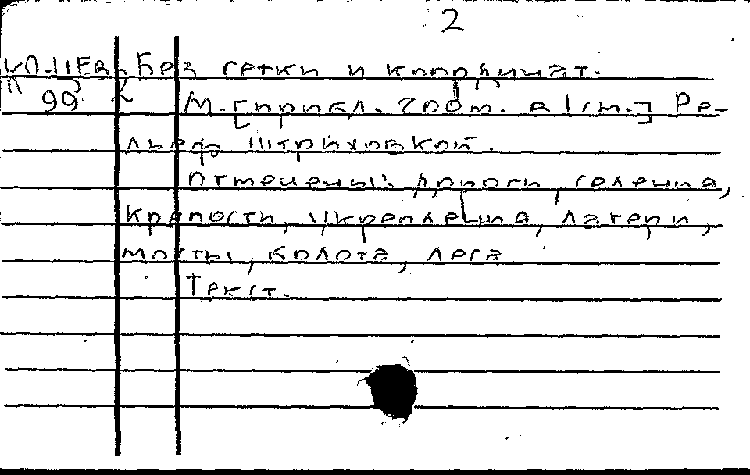 2
Без сетки и координат.
99 М. [прибл. 200 м. в 1 см.] Ре-
льеф штриховкой.
Отмечены: дороги, селения,
крепости, укрепления, лагери,
мосты, болота, леса
Текст.